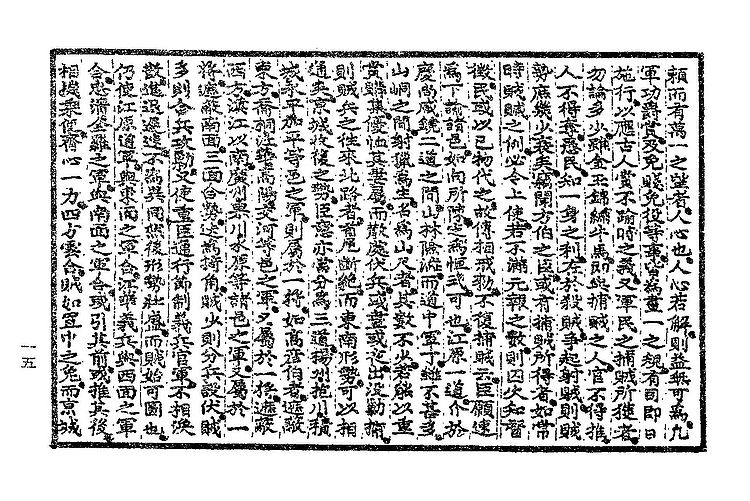 賴而有萬一之望者人心也人心若解則益無可爲凡
軍功爵賞及免賤免役等事皆爲畫一之規有司卽日
施行以應古人賞不踰時之義又軍民之捕賊所獲者
勿論多少雖金玉錦繡牛馬則給捕賊之人官不得推
人不得奪愚民知一身之利在於殺賊爭起射賊則賊
勢庶幾少衰矣竊聞方伯之臣或有捕賊所得者如常
時賊贓之例必令上使若不滿元報之數則囚火知督
徵民或以己物代之故傳相戒勅不復捕賊云臣願速
爲下諭諸邑如向所陳之爲恒式可也江原一道介於
慶尚咸鏡二道之間山林險深而道中軍丁雖不甚多
山峒之間射獵爲生名爲山尺者其數不少若能以重
賞聯集優恤其妻屬而散處伏兵或晝或夜出沒勦捕
則賊兵之往來北路者首尾斷絕而東南形勢可以相
通矣京城收復之勢臣意亦當分爲三道楊州抱川積
城永平加平等邑之軍則屬於一將如高彥伯者遮蔽
東方喬桐江華高陽交河等邑之軍又屬於一將遮蔽
西方漢江以南廣州果川水原等諸邑之軍又屬於一
將遮蔽南面三面合勢迭爲掎角賊少則分兵設伏賊
多則合兵攻勦又使重臣通行節制義兵官軍不相淚
散進退遲速不爲異同然後形勢壯盛而賊始可圖也
仍使江原道軍與東面之軍合江華義兵與西面之軍
合忠清全羅之軍與南面之軍合或引其前或推其後
相機乘便齊心一力四方雲合賊如罝中之兔而京城
一五